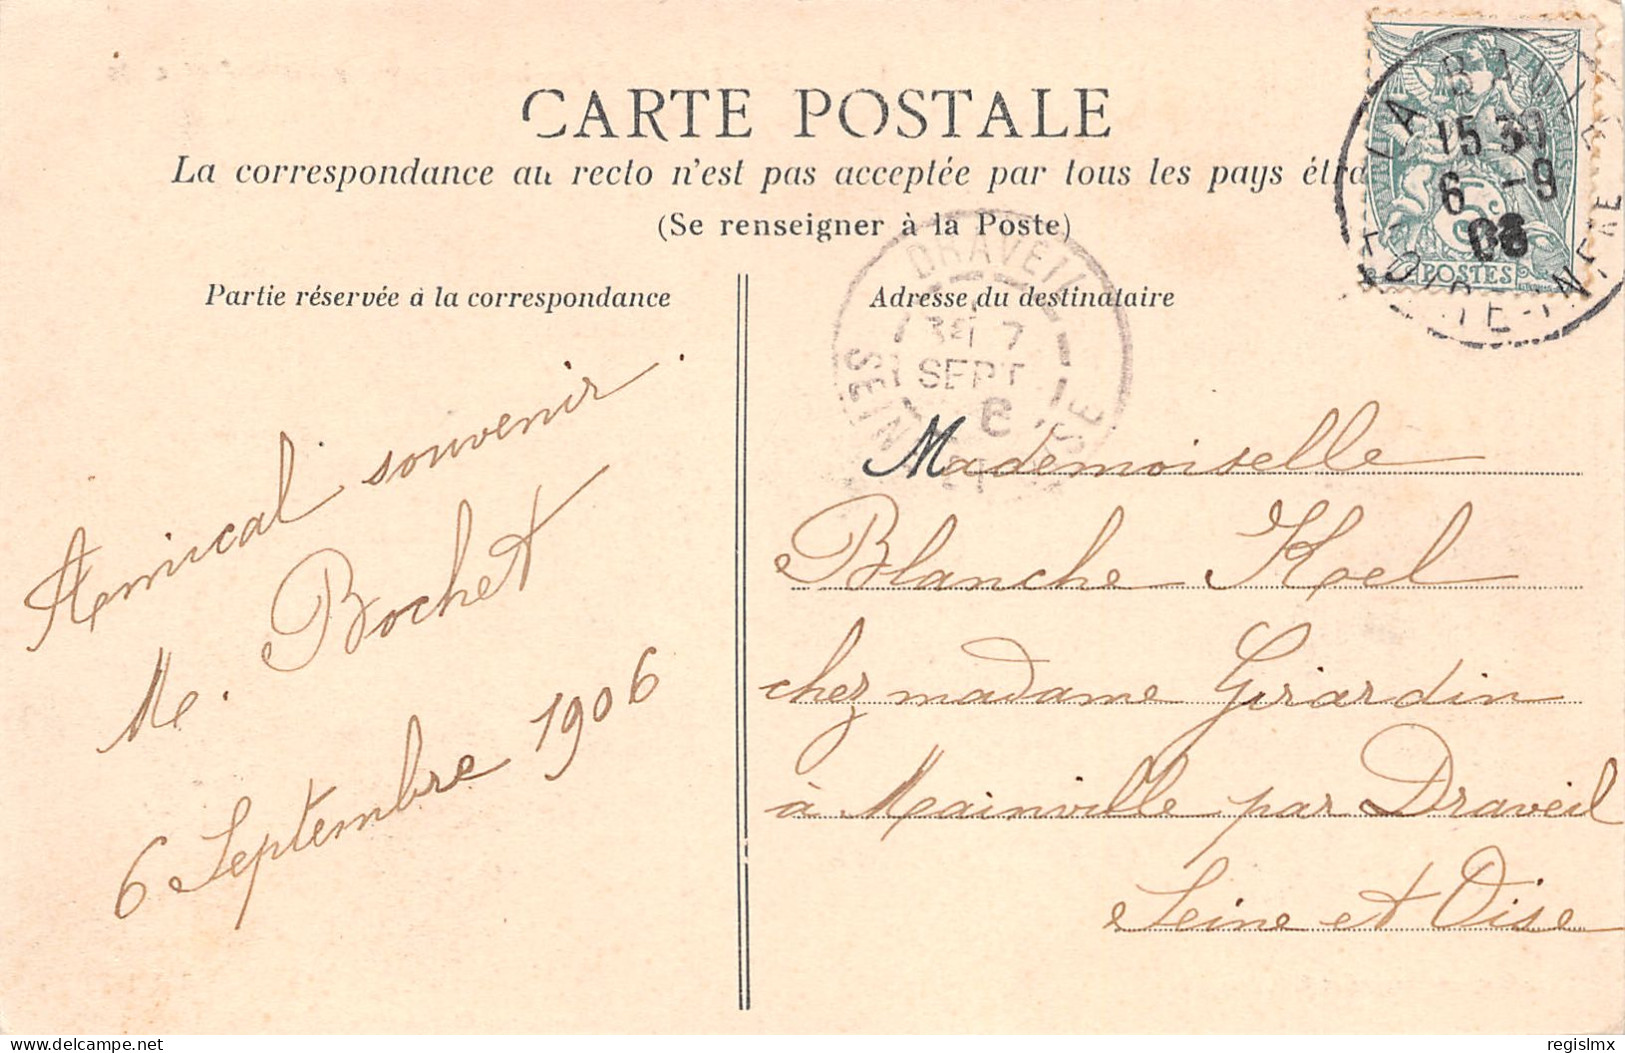 CARTE POSTALE
La correspondance au recto n'est pas acceptée par tous les pays
(Se renseigner à la Poste)
LA
15 30
6 -9
06
POSTES
DRAVEIL
7
SEPT
6
SEINE ET OISE
Partie réservée à la correspondance
Amical souvenir.
M. Bochet
6 Septembre 1906
Adresse du destinataire
Mademoiselle
Blanche Koel
chez madame Girardin
à Mainville par Draveil
Seine et Oise
delcampe.net
regislmx